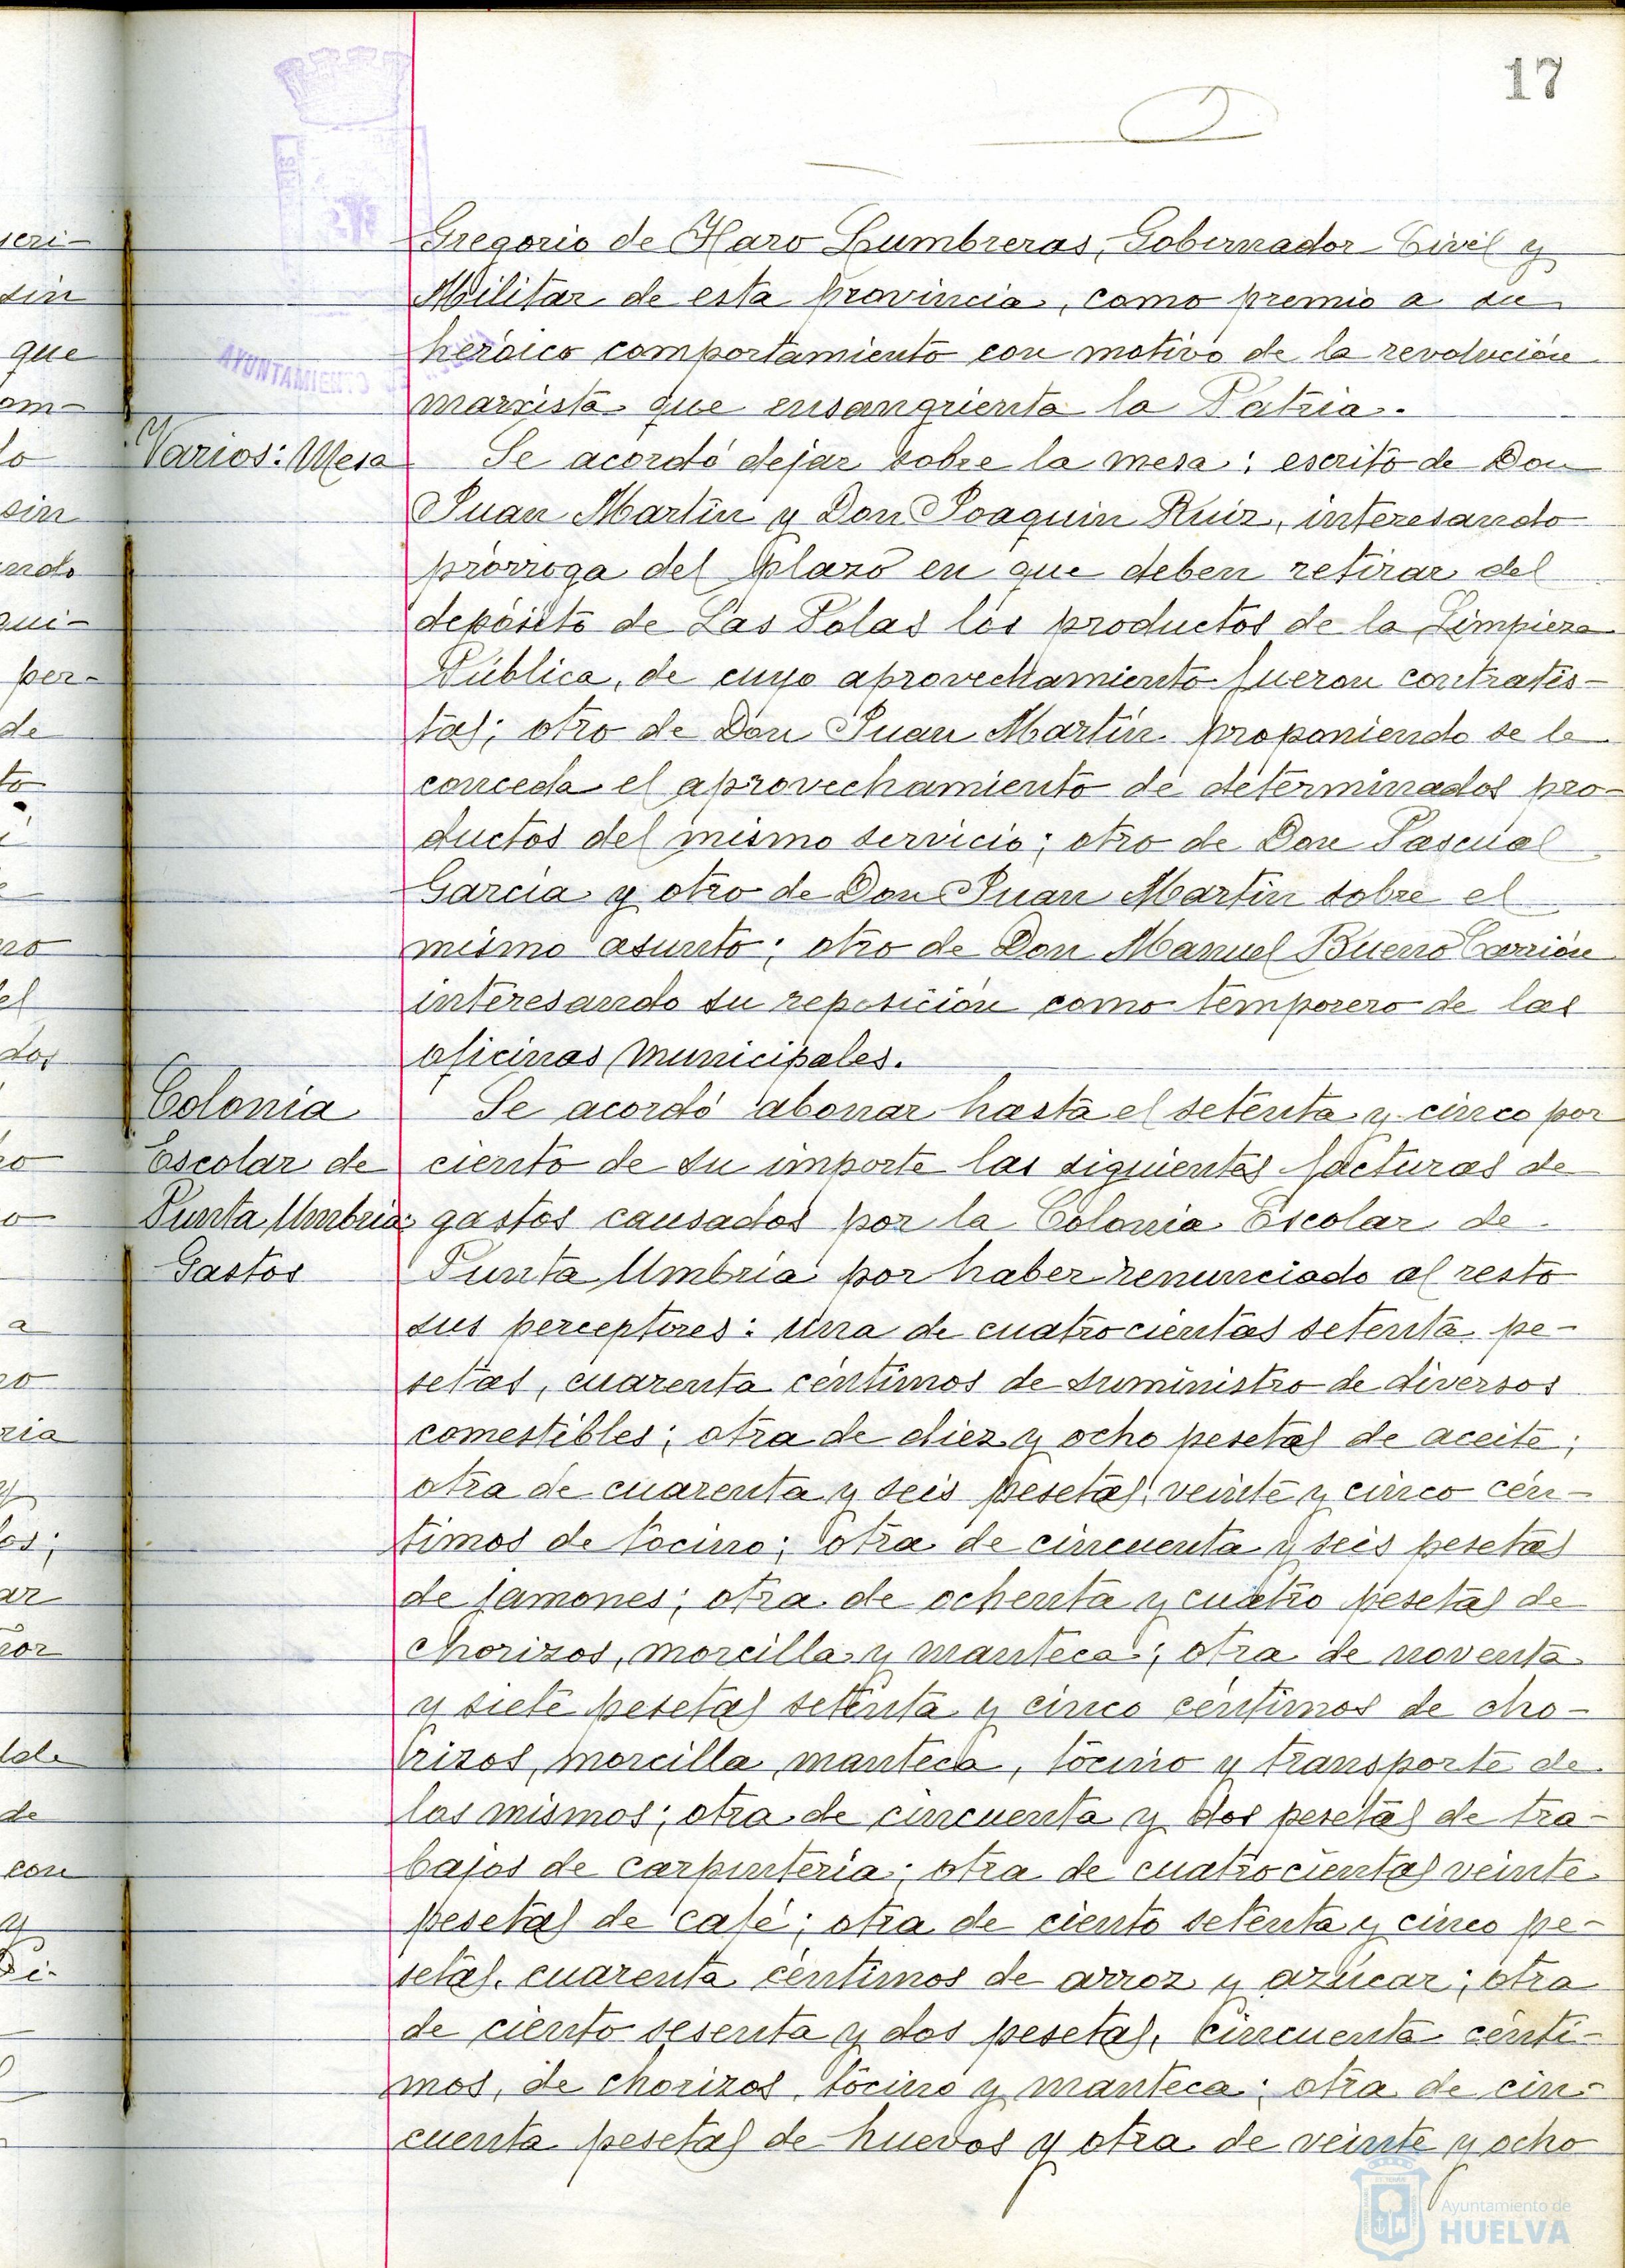 17
Gregorio de Haro Lumbreras, Gobernador Civil y
Militar de esta provincia, como premio a su
heróico comportamiento con motivo de la revolución
marxista que ensangrienta la Patria.
Varios: Mesa
Se acordó dejar sobre la mesa: escrito de Don
Juan Martín y Don Joaquin Ruiz, interesando
prórroga del plazo en que deben retirar del
depósito de Las Polas los productos de la Limpieza
Pública, de cuyo aprovechamiento fueron contratis-
tas; otro de Don Juan Martín proponiendo se le
conceda el aprovechamiento de determinados pro-
ductos del mismo servicio; otro de Don Pascual
García y otro de Don Juan Martín sobre el
mismo asunto; otro de Don Manuel Bueno Carrión
interesando su reposición como temporero de las
oficinas municipales.
Colonia
Escolar de
Punta Umbria:
Gastos
Se acordó abonar hasta el setenta y cinco por
ciento de su importe las siguientes facturas de
gastos causados por la Colonia Escolar de
Punta Umbría por haber renunciado al resto
sus perceptores: Una de cuatrocientas setenta pe-
setas, cuarenta céntimos de suministro de diversos
comestibles; otra de diez y ocho pesetas de aceite;
otra de cuarenta y seis pesetas, veinte y cinco cén-
timos de tocino; otra de cincuenta y seis pesetas
de jamones; otra de ochenta y cuatro pesetas de
chorizos, morcilla y manteca; otra de noventa
y siete pesetas setenta y cinco céntimos de cho-
rizos, morcilla, manteca, tocino y transporte de
los mismos; otra de cincuenta y dos pesetas de tra-
bajos de carpintería; otra de cuatrocientas veinte
pesetas de café; otra de ciento setenta y cinco pe-
setas, cuarenta céntimos de arroz y azúcar; otra
de ciento sesenta y dos pesetas, cincuenta cénti-
mos, de chorizos, tocino y manteca; otra de cin-
cuenta pesetas de huevos y otra de veinte y ocho
AYUNTAMIENTO DE
Ayuntamiento de
HUELVA